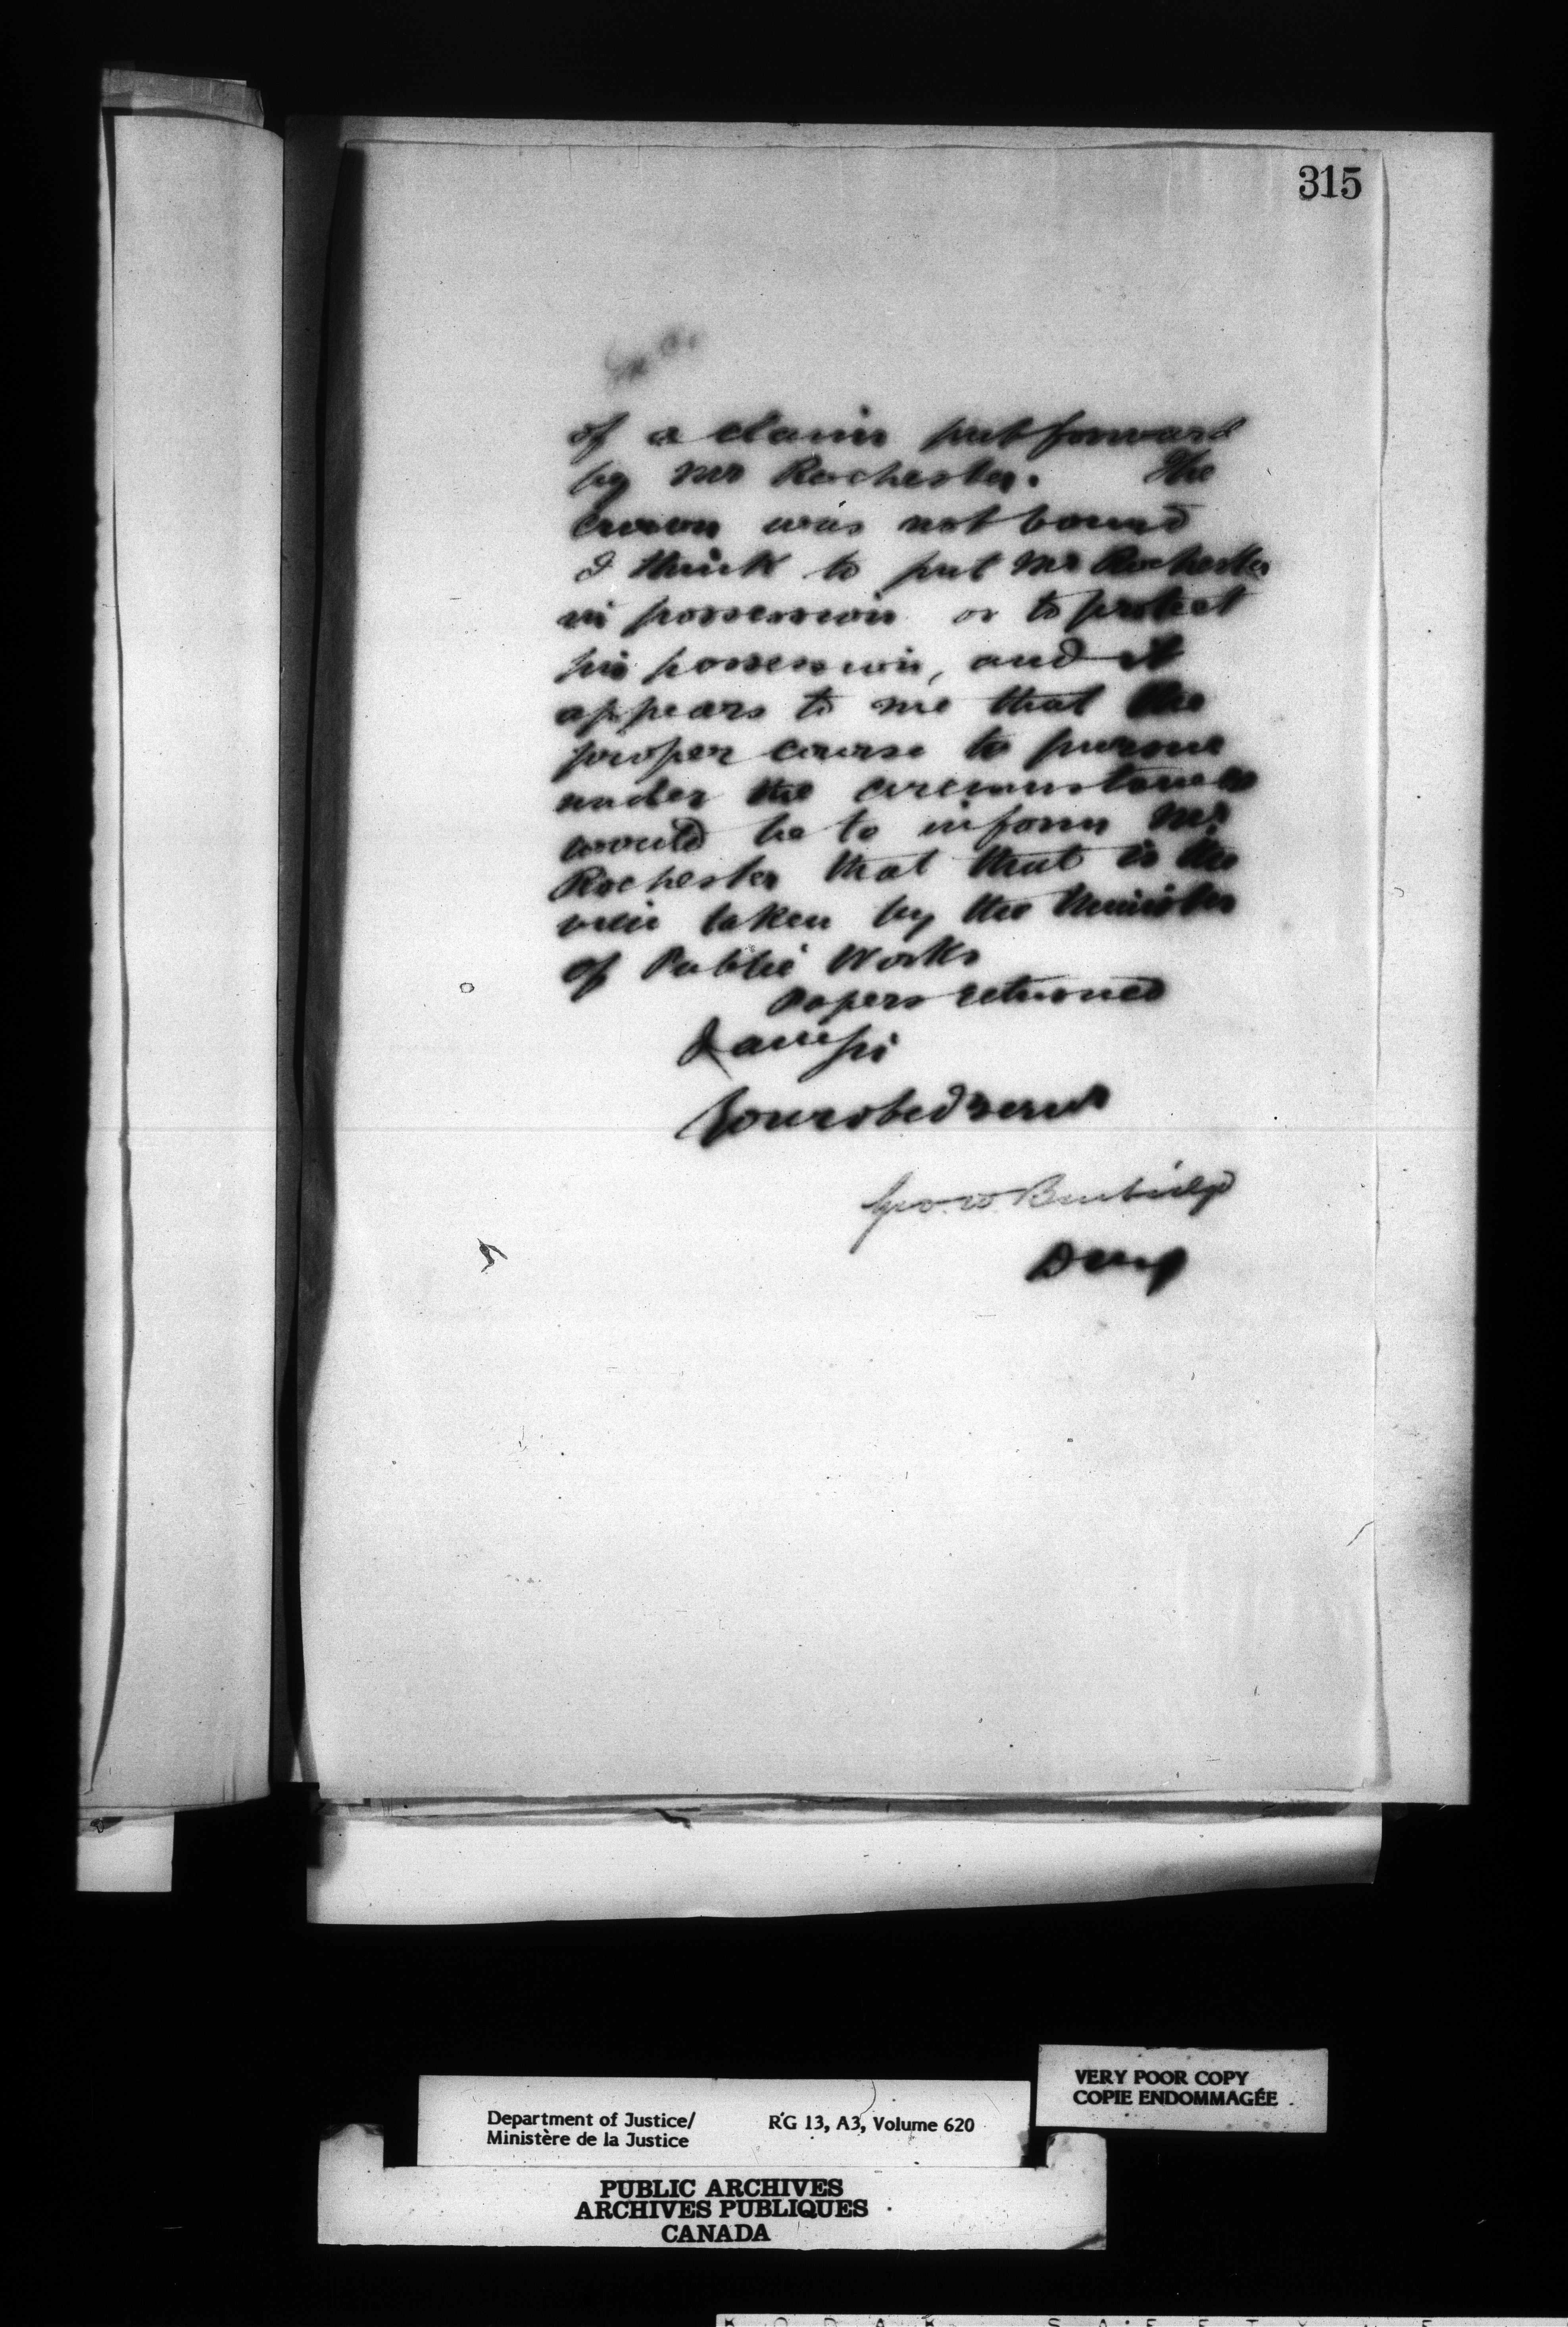 315
of a claim put forward
by Mr Rochester. The
Crown was not bound
I think to put Mr Rochester
in possession or to protect
his possession, and it
appears to me that the
proper course to pursue
under the circumstances
would be to inform Mr
Rochester that that is the
view taken by the Minister
of Public Works
Papers returned
I am sir
Your obed servt
Geo. W. Burbidge
DMJ
VERY POOR COPY
COPIE ENDOMMAGÉE
Department of Justice/ RG 13, A3, Volume 620
Ministère de la Justice
PUBLIC ARCHIVES
ARCHIVES PUBLIQUES
CANADA